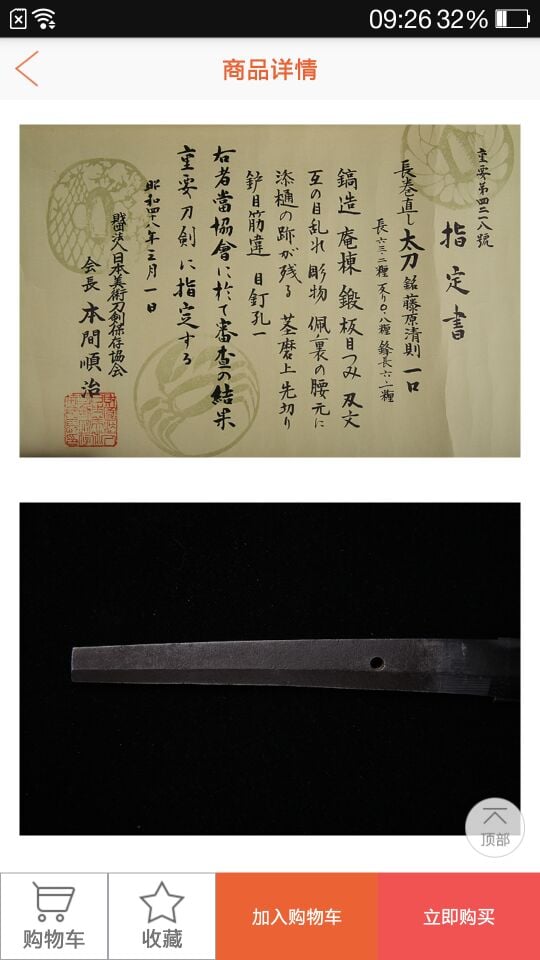 09:26 32%
商品详情
重要第四二八號
指定書
長巻直し太刀 銘 藤原清則 一口
長六三・二糎 反り〇・八糎 鋒長六・一糎
鎬造 庵棟 鍛 板目つみ 刃文
互の目乱れ 彫物 佩裏の腰元に
添樋の跡が残る 茎磨上 先切り
鈩目筋違 目釘孔一
右者當協會に於て審査の結果
重要刀剣に指定する
昭和四八年三月一日
財団法人日本美術刀剣保存協会
会長 本間順治
顶部
购物车
收藏
加入购物车
立即购买